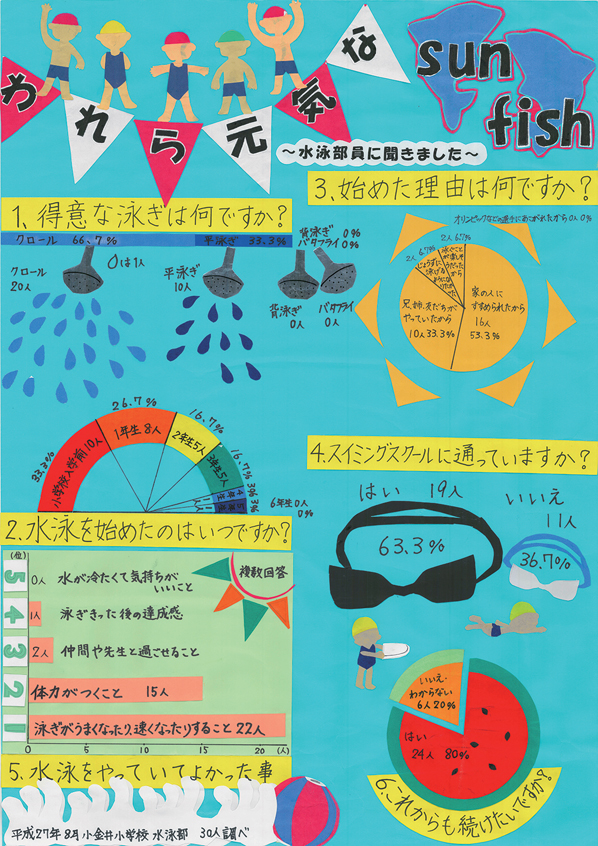 われら元気な
sun
fish
～水泳部員に聞きました～
1、得意な泳ぎは何ですか?
クロール 66.7%
平泳ぎ 33.3%
背泳ぎ 0%
バタフライ 0%
クロール
20人
0は1人
平泳ぎ
10人
背泳ぎ
0人
バタフライ
0人
33.3%
26.7%
16.7%
16.7%
3%
3%
小学校入学前10人
1年生8人
2年生5人
3年生5人
6年生0人
0%
2.水泳を始めたのはいつですか?
3.始めた理由は何ですか?
オリンピックなどの選手にあこがれたから0人0%
2人 6.7%
2人 6.7%
家の人に
すすめられたから
16人
53.3%
兄、姉、友だちが
やっていたから
10人33.3%
4.スイミングスクールに通っていますか?
はい 19人
63.3%
いいえ
11人
36.7%
(位)
複数回答
5
0人 水が冷たくて気持ちが
いいこと
4
1人 泳ぎきった後の達成感
3
2人 仲間や先生と過せること
2
体力がつくこと 15人
1
泳ぎがうまくなったり、速くなったりすること22人
0 5 10 15 20 (人)
5.水泳をやっていてよかった事
いいえ・
わからない
6人20%
はい
24人 80%
6.これからも続けたいですか?
平成27年8月 小金井小学校 水泳部 30人調べ